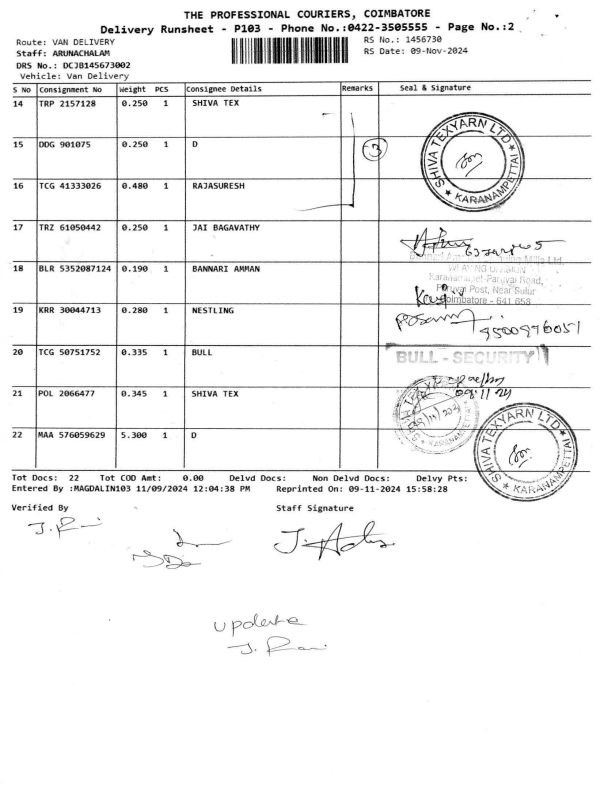 THE PROFESSIONAL COURIERS, COIMBATORE
Delivery Runsheet - P103 - Phone No.:0422-3505555 - Page No.:2
Route: VAN DELIVERY
RS No.: 1456730
Staff: ARUNACHALAM
RS Date: 09-Nov-2024
DRS No.: DCJB145673002
Vehicle: Van Delivery
S No Consignment No Weight PCS Consignee Details Remarks Seal & Signature
14 TRP 2157128 0.250 1 SHIVA TEX
SHIVA TEXYARN LTD ★ KARANAMPETTAI ★
15 DDG 901075 0.250 1 D 3
16 TCG 41333026 0.480 1 RAJASURESH
17 TRZ 61050442 0.250 1 JAI BAGAVATHY
Mills Ltd.
WEAVING DIVISION
18 BLR 5352087124 0.190 1 BANNARI AMMAN
Karanampet-Paruvai Road,
Paruvai Post, Near Sulur
Coimbatore - 641 658
19 KRR 30044713 0.280 1 NESTLING
9500976051
20 TCG 50751752 0.335 1 BULL
BULL - SECURITY
21 POL 2066477 0.345 1 SHIVA TEX
09.11.24
SHIVA TEXYARN LTD ★ KARANAMPETTAI ★
22 MAA 576059629 5.300 1 D
Tot Docs: 22 Tot COD Amt: 0.00 Delvd Docs: Non Delvd Docs: Delvy Pts:
Entered By :MAGDALIN103 11/09/2024 12:04:38 PM Reprinted On: 09-11-2024 15:58:28
Verified By Staff Signature
J. Rani
update
J. Rani